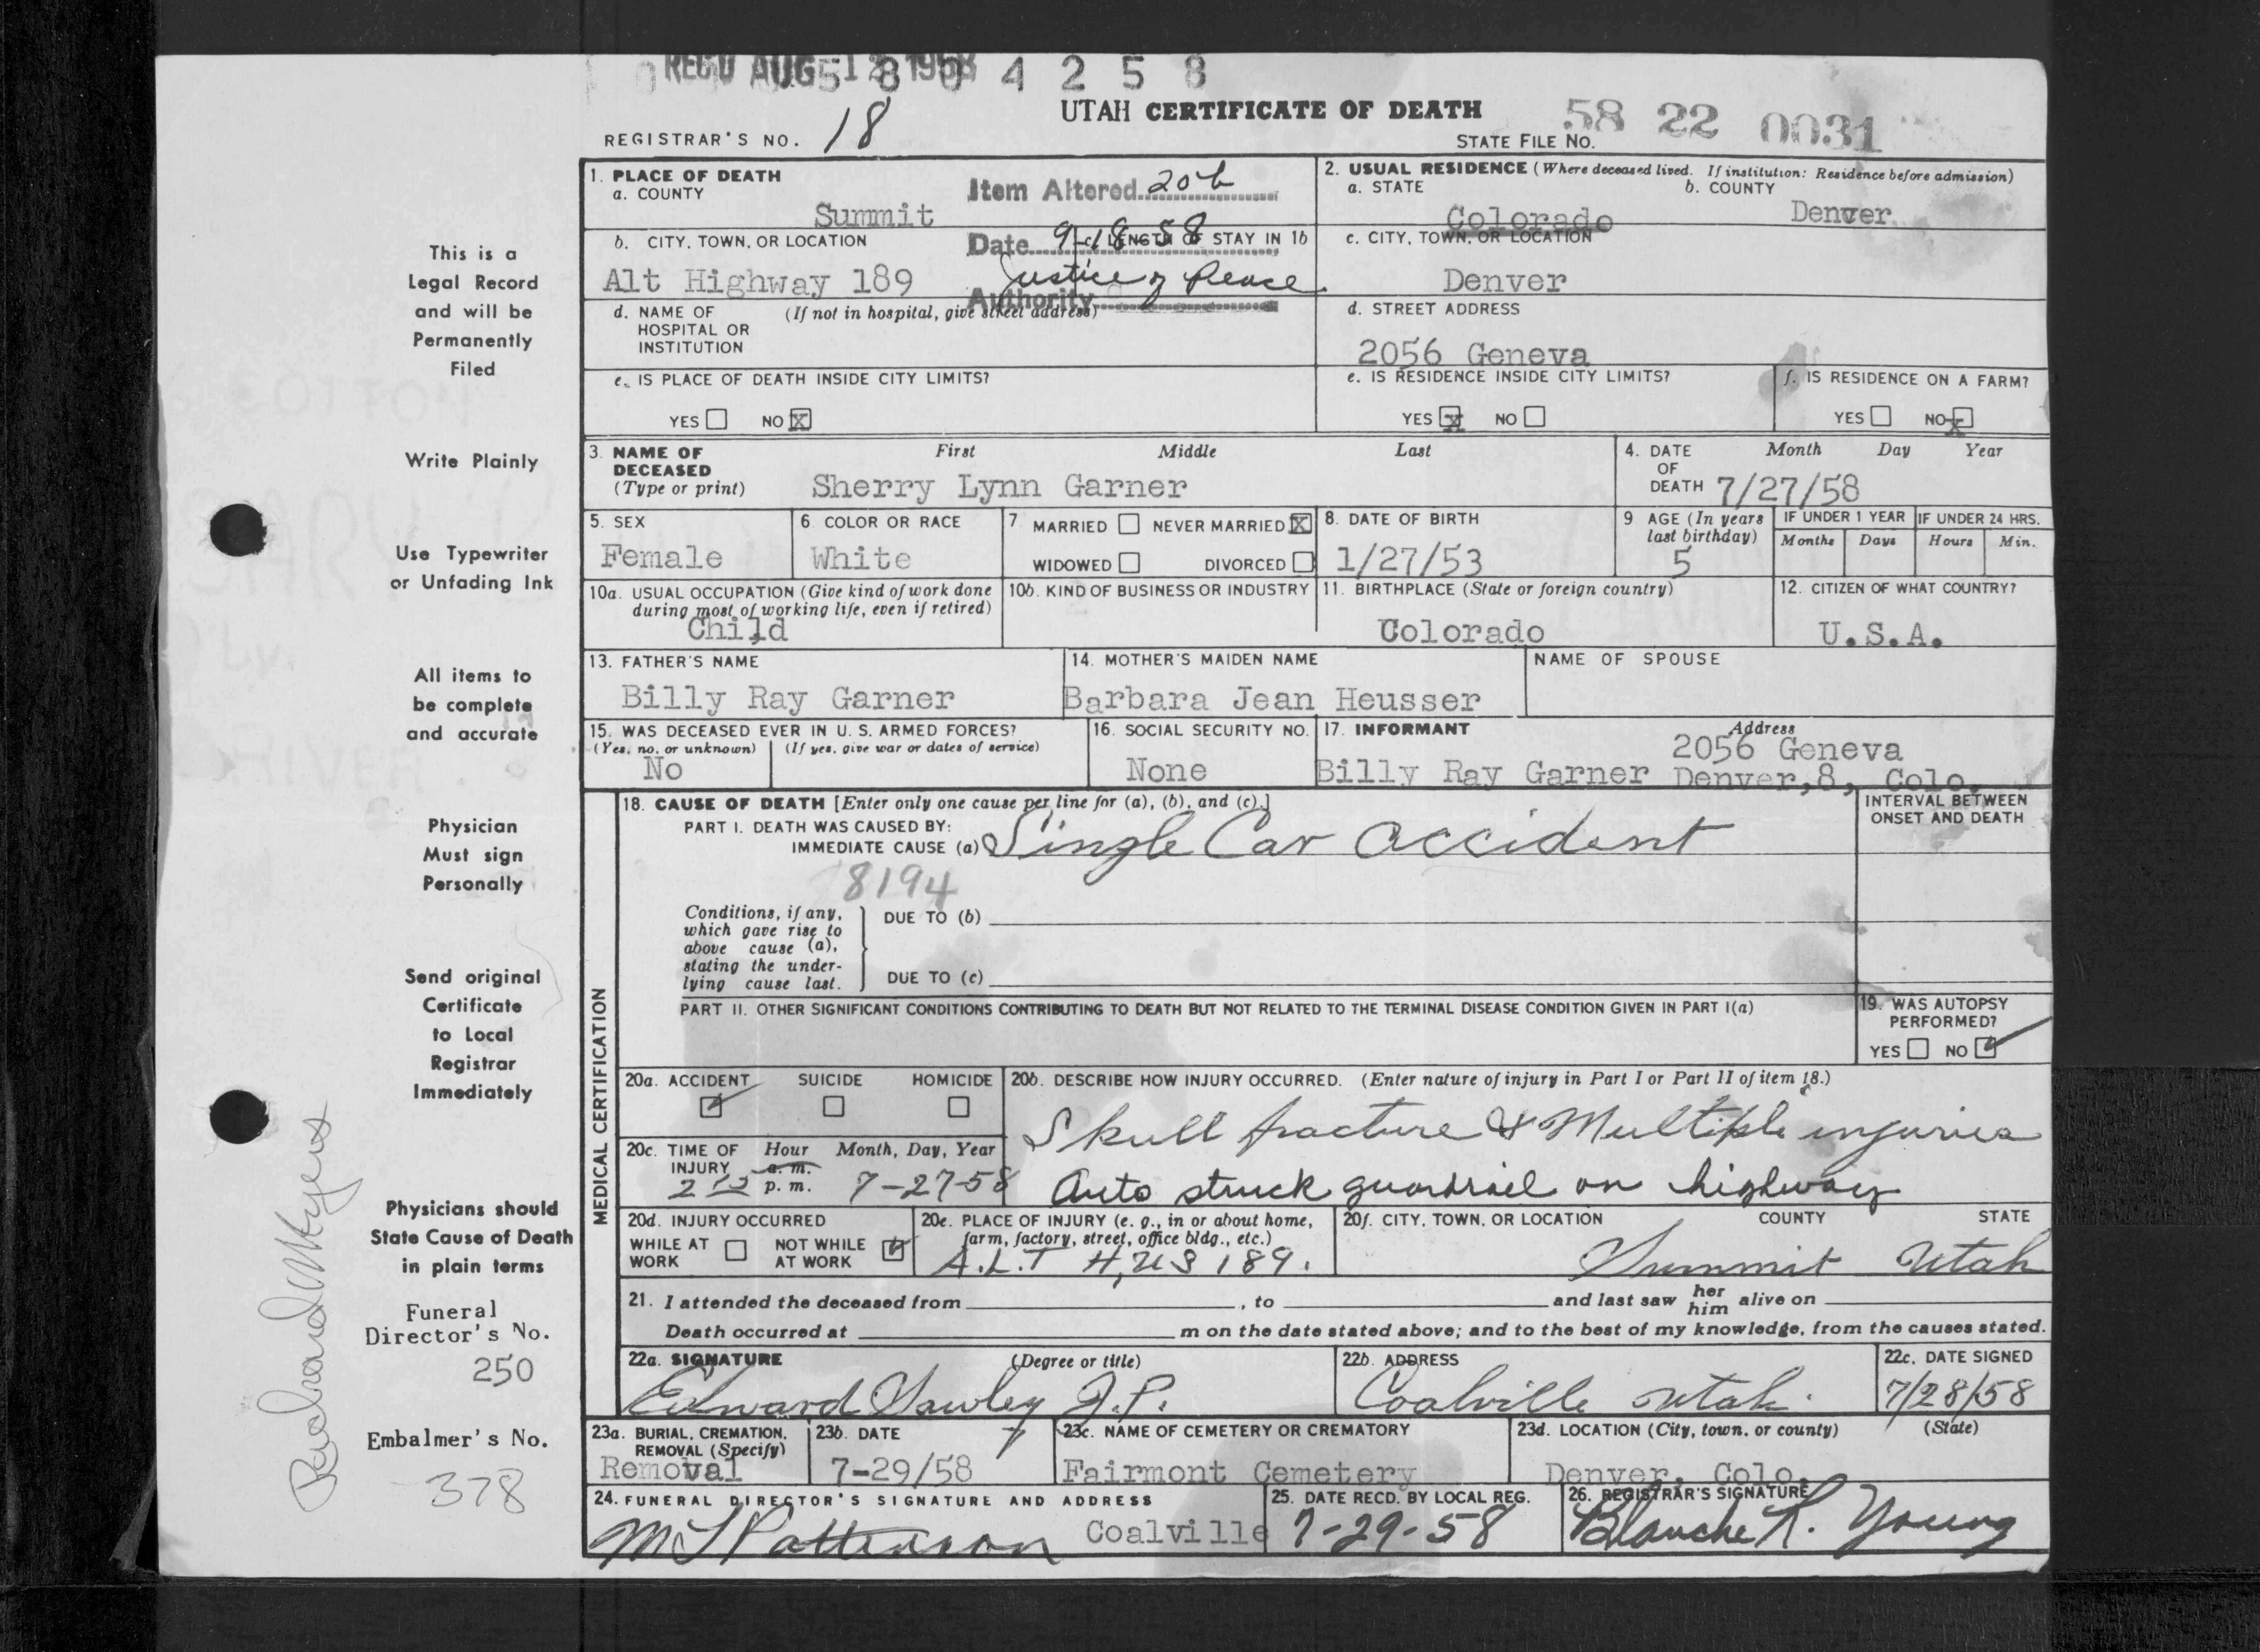 REC'D AUG 12 1958
5 8 0 4 2 5 8
UTAH CERTIFICATE OF DEATH
58 22 0031
REGISTRAR'S NO. 18
STATE FILE NO.
1. PLACE OF DEATH
a. COUNTY
Summit
Item Altered 20b
Date 9-18-58
Justice of Peace.
Authority
2. USUAL RESIDENCE (Where deceased lived. If institution: Residence before admission)
a. STATE b. COUNTY
Colorado Denver
b. CITY, TOWN, OR LOCATION
c. LENGTH OF STAY IN 1b
Alt Highway 189
c. CITY, TOWN, OR LOCATION
Denver
d. NAME OF (If not in hospital, give street address)
HOSPITAL OR
INSTITUTION
d. STREET ADDRESS
2056 Geneva
e. IS PLACE OF DEATH INSIDE CITY LIMITS?
YES NO X
e. IS RESIDENCE INSIDE CITY LIMITS?
YES X NO
f. IS RESIDENCE ON A FARM?
YES NO X
3. NAME OF First Middle Last
DECEASED
(Type or print) Sherry Lynn Garner
4. DATE Month Day Year
OF
DEATH 7/27/58
5. SEX
Female
6. COLOR OR RACE
White
7 MARRIED NEVER MARRIED X
WIDOWED DIVORCED
8. DATE OF BIRTH
1/27/53
9 AGE (In years
last birthday)
5
IF UNDER 1 YEAR IF UNDER 24 HRS.
Months Days Hours Min.
10a. USUAL OCCUPATION (Give kind of work done
during most of working life, even if retired)
Child
10b. KIND OF BUSINESS OR INDUSTRY
11. BIRTHPLACE (State or foreign country)
Colorado
12. CITIZEN OF WHAT COUNTRY?
U.S.A.
13. FATHER'S NAME
Billy Ray Garner
14. MOTHER'S MAIDEN NAME
Barbara Jean Heusser
NAME OF SPOUSE
15. WAS DECEASED EVER IN U. S. ARMED FORCES?
(Yes, no, or unknown) (If yes, give war or dates of service)
No
16. SOCIAL SECURITY NO.
None
17. INFORMANT Address
2056 Geneva
Billy Ray Garner Denver,8, Colo.
18. CAUSE OF DEATH [Enter only one cause per line for (a), (b), and (c).]
PART I. DEATH WAS CAUSED BY:
IMMEDIATE CAUSE (a) Single Car accident
INTERVAL BETWEEN
ONSET AND DEATH
8194
Conditions, if any,
which gave rise to
above cause (a),
stating the under-
lying cause last.
DUE TO (b)
DUE TO (c)
PART II. OTHER SIGNIFICANT CONDITIONS CONTRIBUTING TO DEATH BUT NOT RELATED TO THE TERMINAL DISEASE CONDITION GIVEN IN PART I(a)
19. WAS AUTOPSY
PERFORMED?
YES NO ✓
MEDICAL CERTIFICATION
20a. ACCIDENT SUICIDE HOMICIDE
✓
20b. DESCRIBE HOW INJURY OCCURRED. (Enter nature of injury in Part I or Part II of item 18.)
Skull fracture & Multiple injuries
Auto struck guardrail on highway
20c. TIME OF Hour Month, Day, Year
INJURY a. m.
p. m. 7-27-58
20d. INJURY OCCURRED
WHILE AT NOT WHILE ✓
WORK AT WORK
20e. PLACE OF INJURY (e. g., in or about home,
farm, factory, street, office bldg., etc.)
A.L.T H,US 189.
20f. CITY, TOWN, OR LOCATION COUNTY STATE
Summit Utah
21. I attended the deceased from , to and last saw her him alive on
Death occurred at m on the date stated above; and to the best of my knowledge, from the causes stated.
22a. SIGNATURE (Degree or title)
Edward Sawley J.P.
22b. ADDRESS
Coalville Utah.
22c. DATE SIGNED
7/28/58
23a. BURIAL, CREMATION,
REMOVAL (Specify)
Removal
23b. DATE
7-29/58
23c. NAME OF CEMETERY OR CREMATORY
Fairmont Cemetery
23d. LOCATION (City, town, or county) (State)
Denver, Colo.
24. FUNERAL DIRECTOR'S SIGNATURE AND ADDRESS
Patterson Coalville
25. DATE RECD. BY LOCAL REG.
7-29-58
26. REGISTRAR'S SIGNATURE
Blanche R. Young
This is a
Legal Record
and will be
Permanently
Filed
Write Plainly
Use Typewriter
or Unfading Ink
All items to
be complete
and accurate
Physician
Must sign
Personally
Send original
Certificate
to Local
Registrar
Immediately
Physicians should
State Cause of Death
in plain terms
Funeral
Director's No.
250
Embalmer's No.
378
Richard Myers